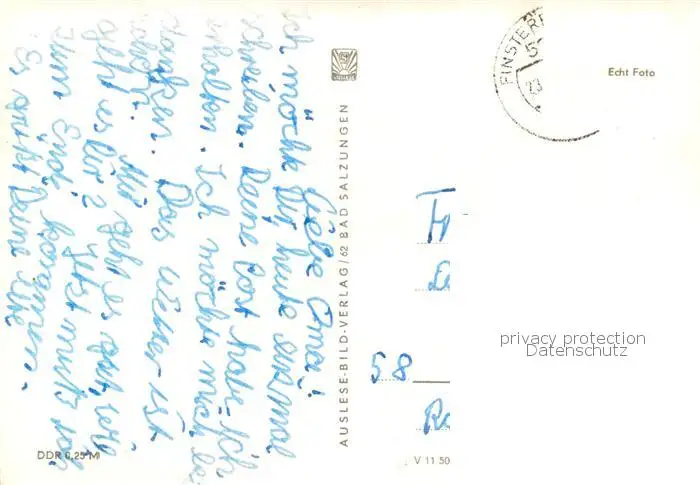 Liebe Oma!
Ich möchte Dir heute einmal
schreiben. Deine Post habe ich
erhalten. Ich möchte mich be
danken. Das Wetter ist
Mir geht es gut, wie
geht es Dir? Jetzt muß ich
zum Ende kommen.
Es grüßt Deine
AUSLESE-BILD-VERLAG/62 BAD SALZUNGEN
DDR 0,25 M
FINSTER
5
Echt Foto
Fr
58
V 11 50
privacy protection
Datenschutz